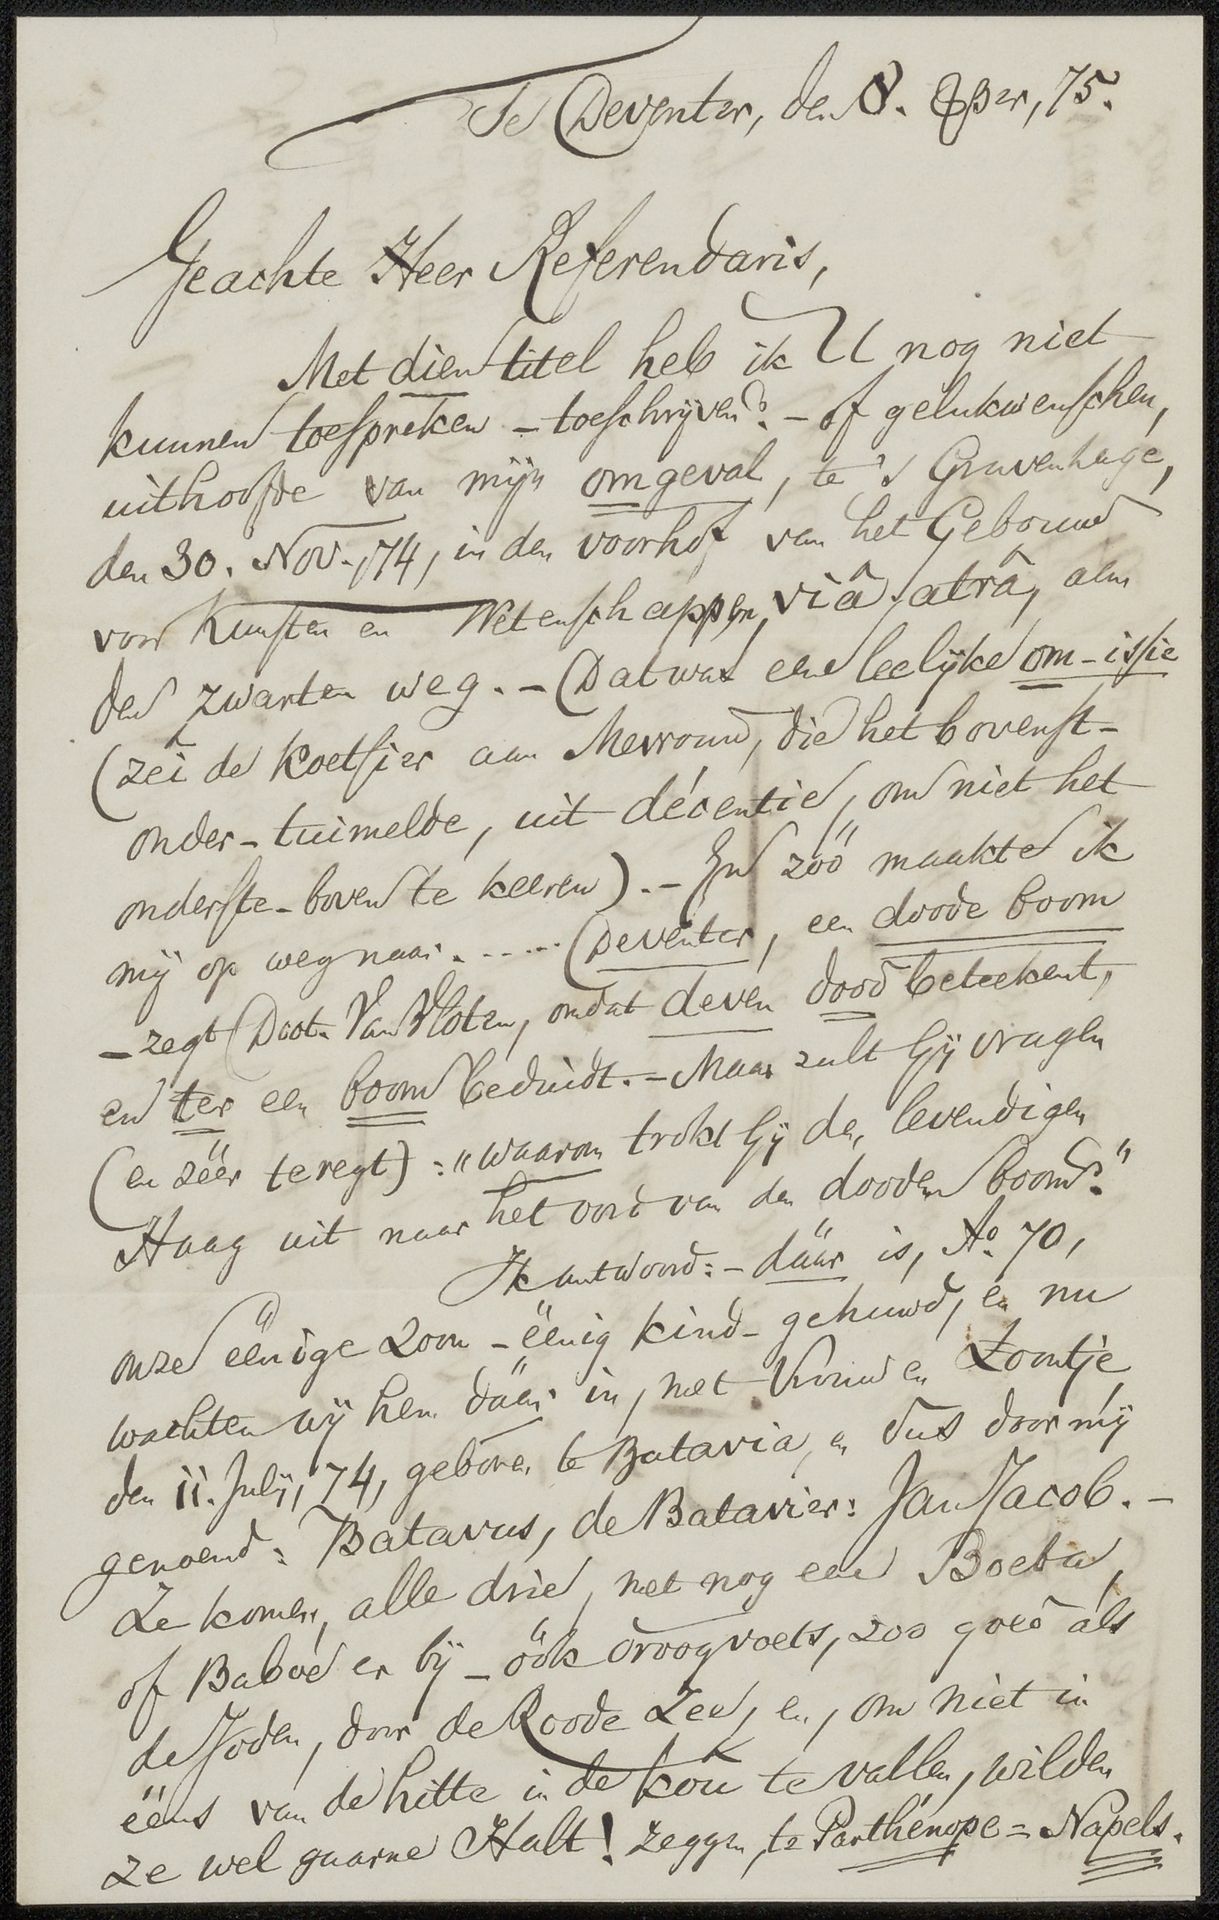 Te Deventer, den 8. 8ber, 75.
Geachte Heer Referendaris,
Met dien titel heb ik U nog niet
kunnen toespreken – toeschrijven? – of gelukwenschen,
uithoofde van mijn omgeval, te 's Gravenhage,
den 30. Nov., 74, in den voorhof van het Gebouw
voor Kunsten en Wetenschappen, viâ atrâ, alm
den zwarten weg. – Dat was eene leelijke om-issie
(zei de koetsier aan Mevrouw, die het bovenst-
onder-tuimelde, uit décentie, om niet het
onderste-boven te keeren). – En zóó maakte ik
mij op weg naar ...... Deventer, een doode boom
– zegt Doct. Van Vloten, omdat deven dood beteekent,
en ter een boom beduidt. – Maar zult Gij vragen
(en zéér te regt): "waarom trokt Gij den levendigen
Haag uit naar het oord van den dooden boom?"
Ik antwoord: – dáár is, Ao. 70,
onze éénige Zoon – éénig kind – gehuwd, en nu
wachten wij hen dáár in, met Vrouw en Zoontje
den 11. Julij, 74, geboren te Batavia, en dus door mij
genoemd: Batavus, de Batavier: Jan Jacob. –
Ze komen, alle drie, met nog eene Boeba,
of Baboe er bij – óók droogvoets, zoo goed als
de Joden, door de Roode Zee, en, om niet in
ééns van de hitte in de kou te vallen, wilden
ze wel gaarne Halt! zeggen, te Parthénope = Napels.